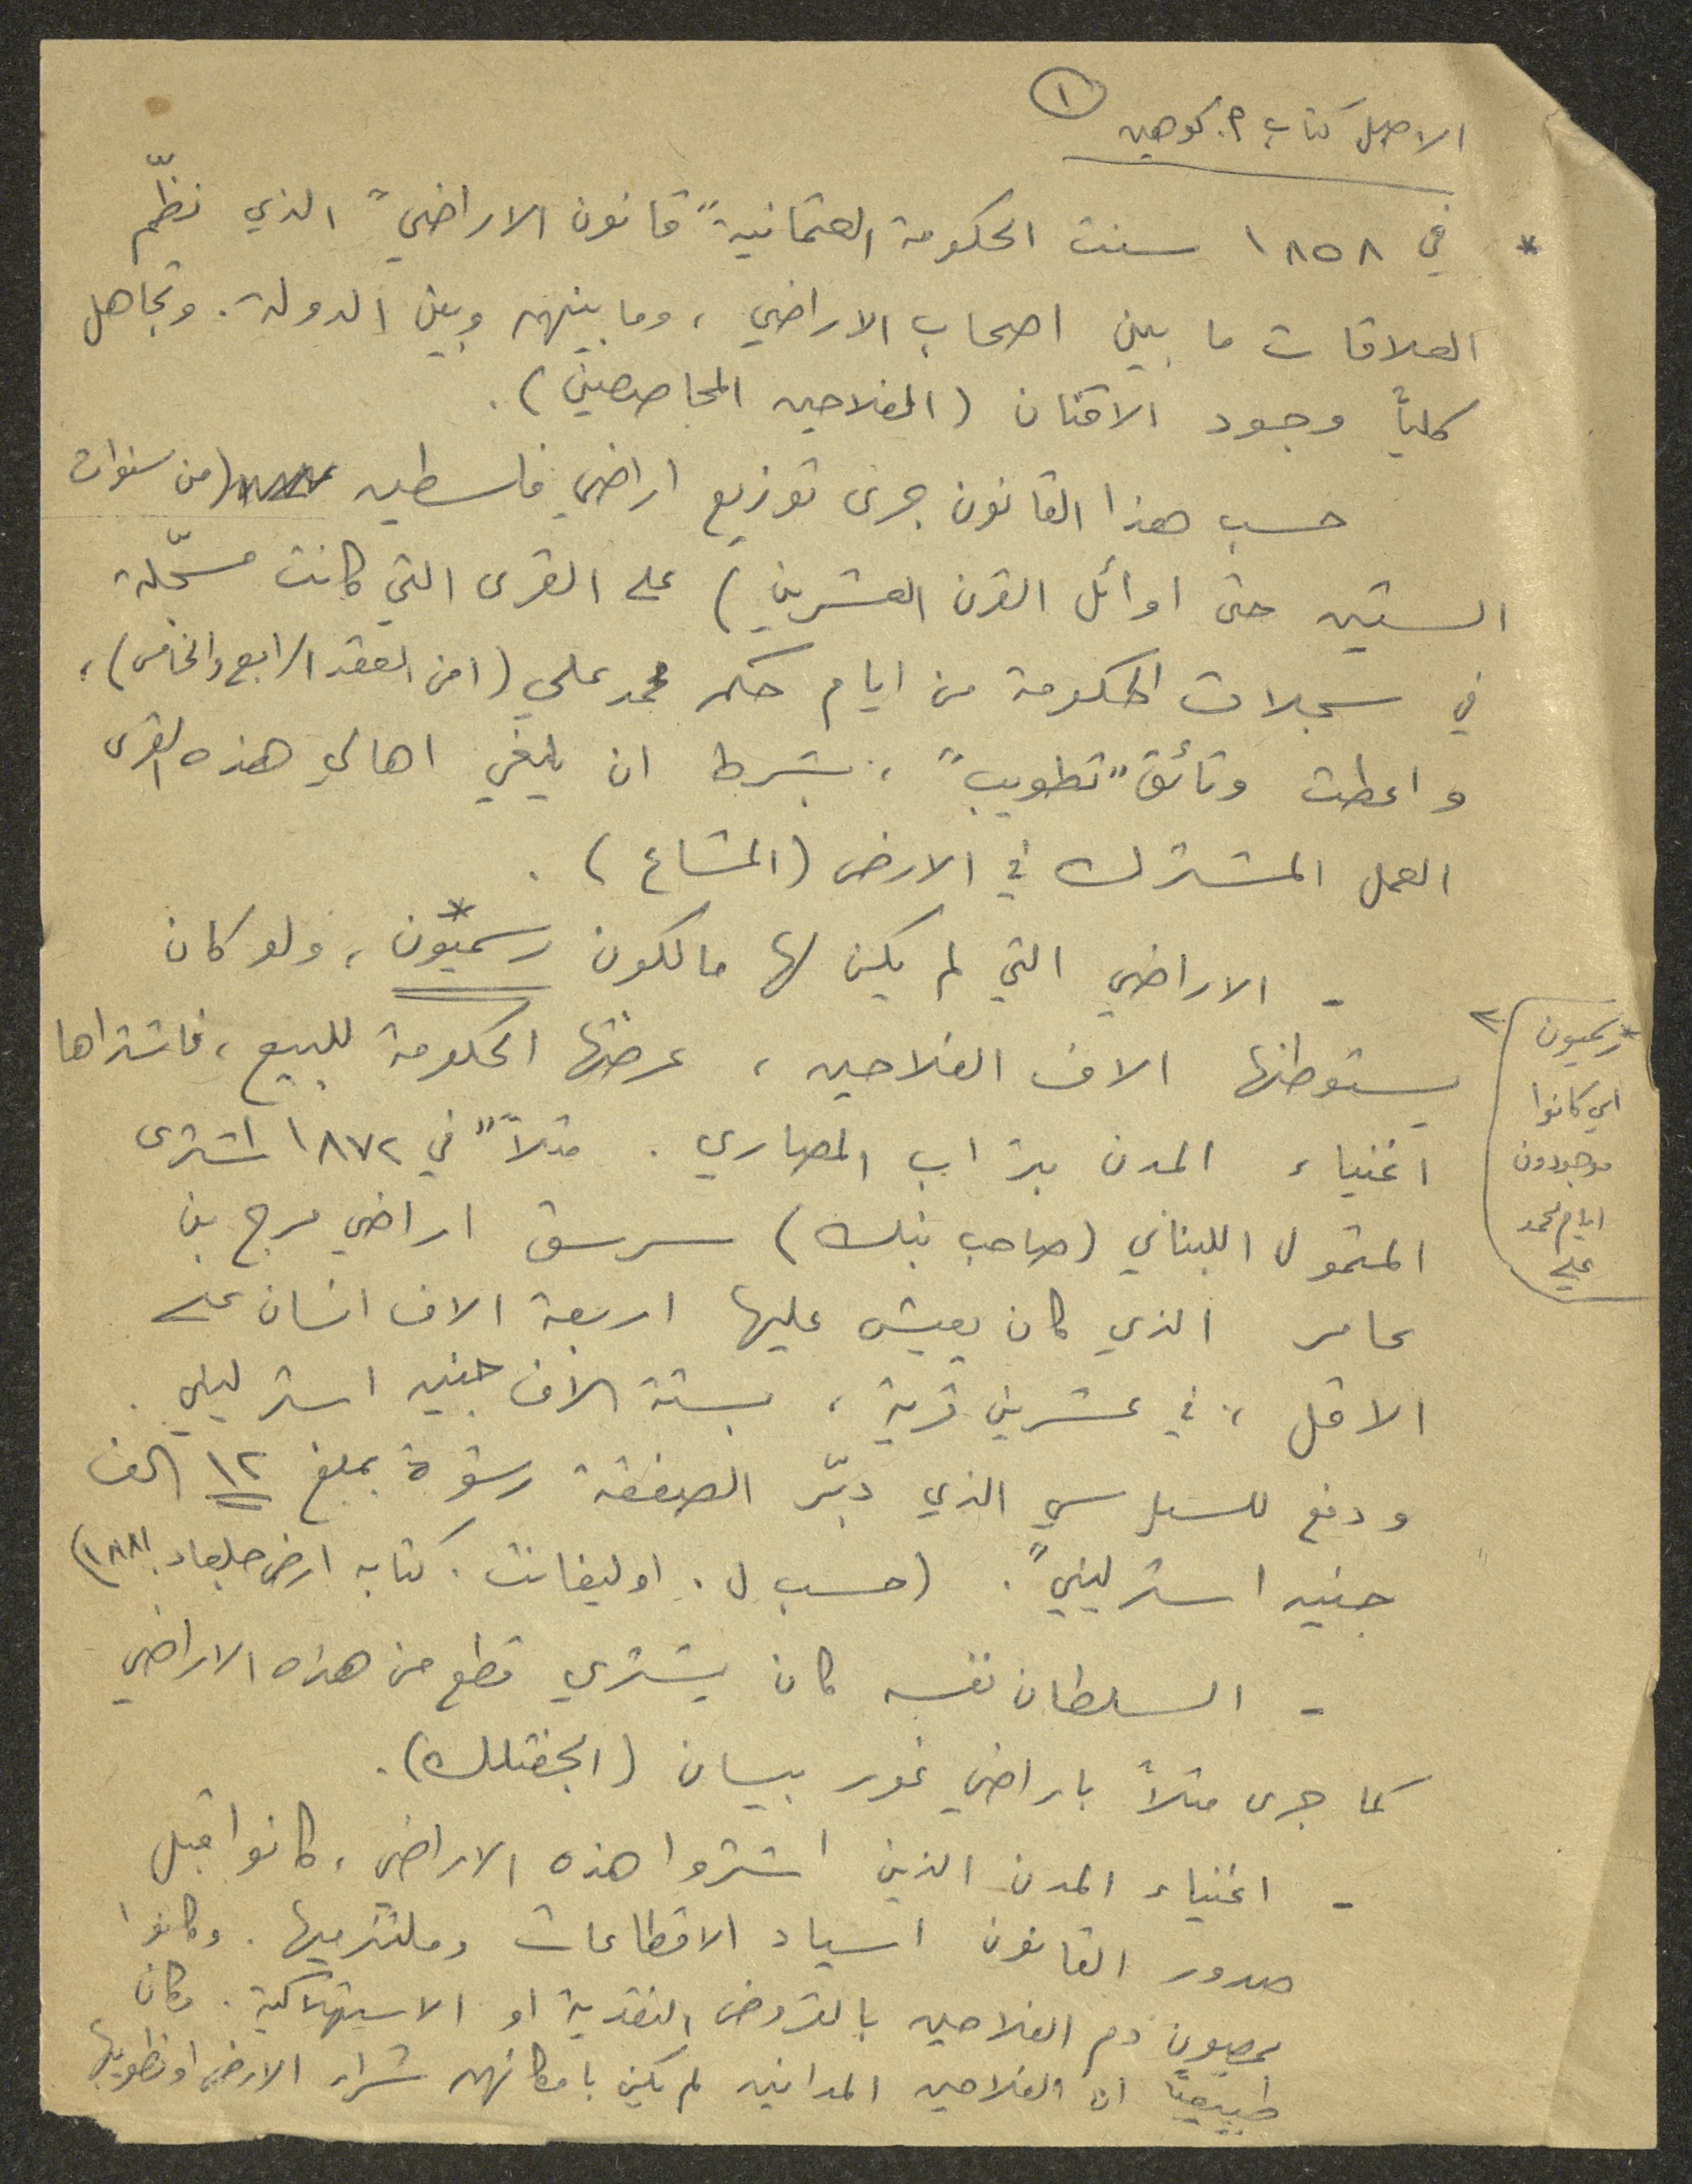 ١
الاصل كتاب م. كوهين
* في ١٨٥٨ سنت الحكومة العثمانية "قانون الاراضي" الذي نظّم
العلاقات ما بين اصحاب الاراضي، وما بينهم وبين الدولة. وتجاهل
كلياً وجود الاقنان (الفلاحين المحاصصين).
حسب هذا القانون جرى توزيع اراضي فلسطين (من سنوات
الستين حتى اوائل القرن العشرين) على القرى التي كانت مسجّلة
في سجلات الحكومة من ايام حكم محمد علي (من العقد الرابع والخامس)،
واعطت وثائق "تطويب"، بشرط ان يلغي اهالي هذه القرى
العمل المشترك في الارض (المشاع).
- الاراضي التي لم يكن لها مالكون رسميّون*، ولو كان
يستوطنها الاف الفلاحين، عرضتها الحكومة للبيع، فاشتراها
اغنياء المدن بتراب المصاري. مثلاً "في ١٨٧٢ اشترى
المتمول اللبناني (صاحب بنك) سرسق اراضي مرج بن
عامر الذي كان يعيش عليها اربعة الاف انسان على
الاقل، في عشرين قرية، بستة الاف جنيه استرليني.
ودفع للسياسي الذي دبّر الصفقة رشوة بمبلغ ١٢ الف
جنيه استرليني". (حسب ل. اوليفانت. كتابه ارض جلعاد. ١٨٨١)
- السلطان نفسه كان يشتري قطع من هذه الاراضي
كما جرى مثلاً باراضي غور بيسان (الجفتلك).
- اغنياء المدن الذين اشتروا هذه الاراضي، كانوا قبل
صدور القانون اسياد الاقطاعات وملتزميها. وكانوا
يمصون دم الفلاحين بالقروض النقدية او الاستهلاكية. وكان
طبيعياً ان الفلاحين المدانين لم يكن بامكانهم شراء الارض او تطويبها
* رسميون
اي كانوا
موجودون
ايام محمد
علي